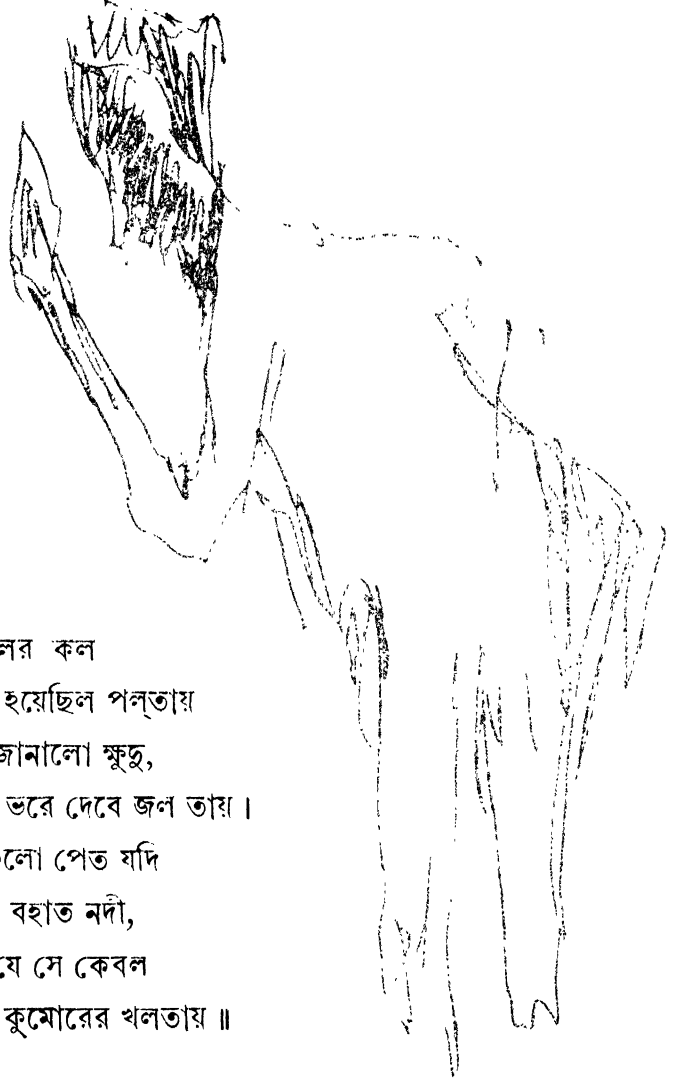 লের কল
হয়েছিল পল্‌তায়
জানালো ক্ষুদু,
ভরে দেবে জল তায়।
লো পেত যদি
বহাত নদী,
যে সে কেবল
কুমোরের খলতায়॥